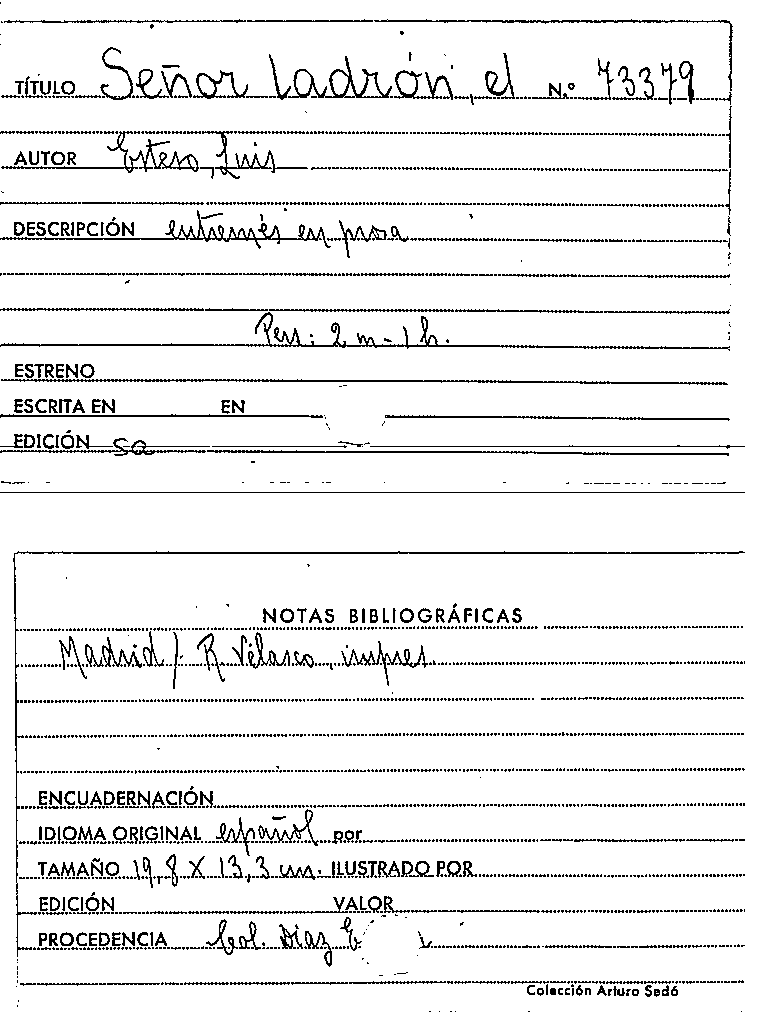 TÍTULO Señor ladrón, el N.º 73379
AUTOR Esteso, Luis
DESCRIPCIÓN entremés en prosa
Pers: 2 m - 1 h.
ESTRENO
ESCRITA EN EN
EDICIÓN sa
NOTAS BIBLIOGRÁFICAS
Madrid / R. Velasco, impres.
ENCUADERNACIÓN
IDIOMA ORIGINAL español por
TAMAÑO 19,8 X 13,3 cm. ILUSTRADO POR
EDICIÓN VALOR
PROCEDENCIA Col. Díaz
Colección Arturo Sedó